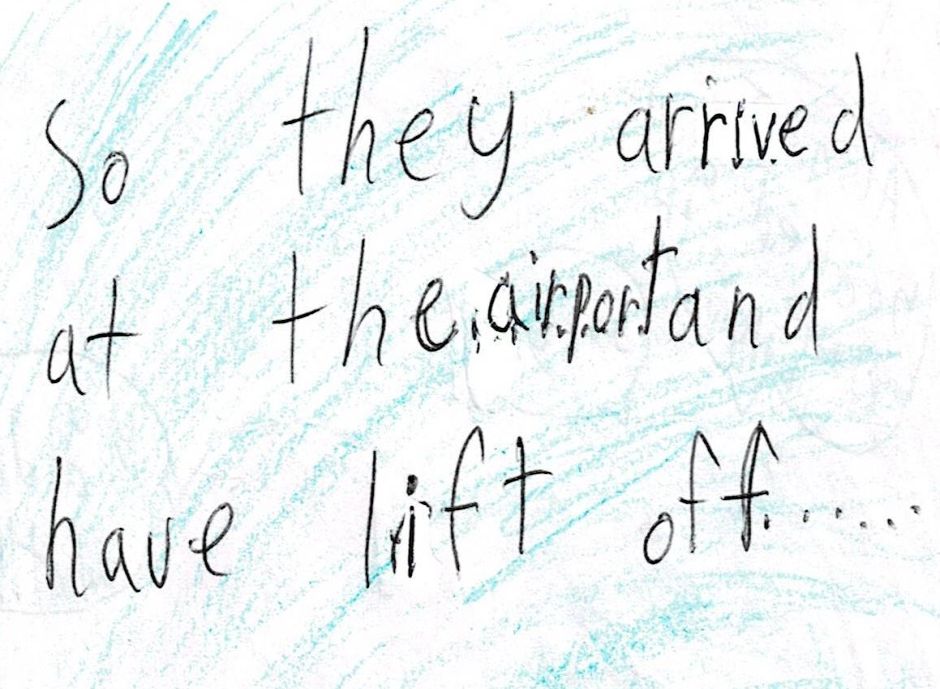 So they arrived
at the airport and
have lift off......